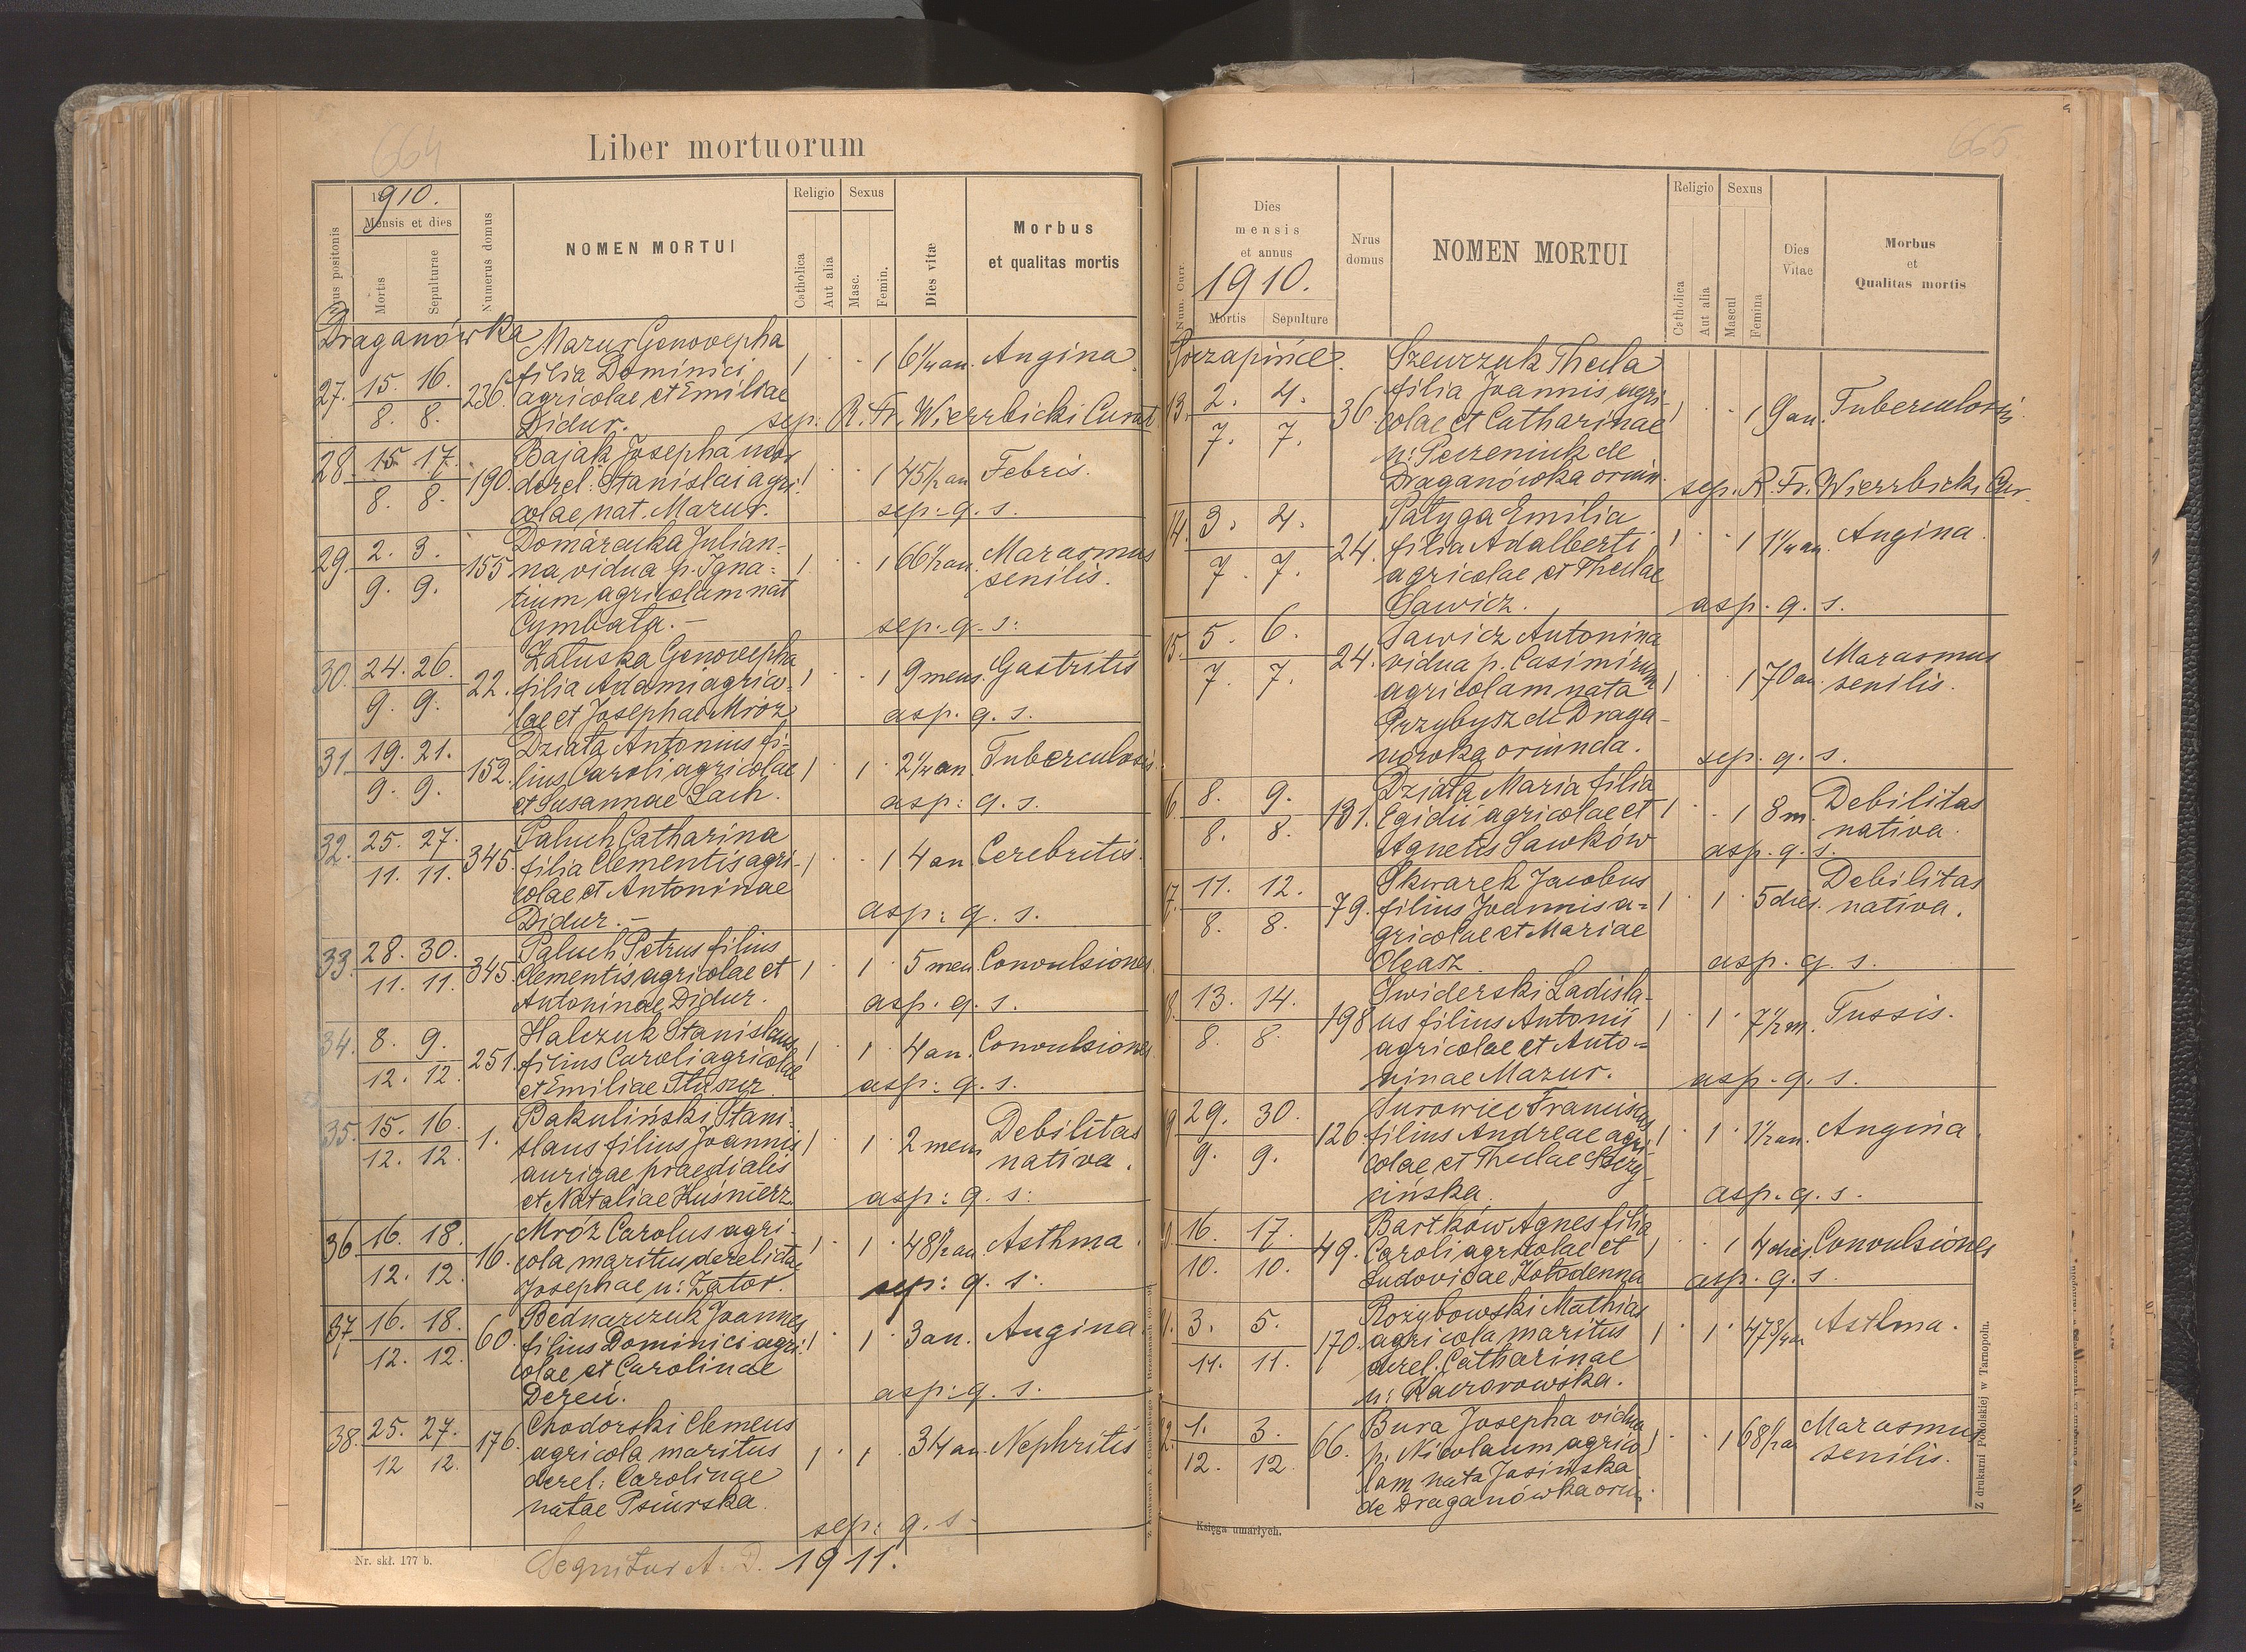 664
Liber mortuorum
1910.
Mensis et dies
Mortis
Sepulturae
Numerus domus
NOMEN MORTUI
Religio
Catholica
Aut alia
Sexus
Masc.
Femin.
Dies vitæ
Morbus
et qualitas mortis
Draganówka
27. 15. 16. 8. 8. 236. Mazur Genovepha 1 1 6 1/4 an. Angina
filia Dominici
agricolae et Emiliae
Didur. sep: R. Fr. Wierzbicki Curat
28. 15. 17. 8. 8. 190. Bajak Josepha uxor 1 1 45 1/2 an Febris.
derel: Stanislai agri-
colae nat. Mazur. sep: q. s.
29. 2. 3. 9. 9. 155 Domarecka Julian- 1 1 66 1/2 an. Marasmus
na, vidua p. Igna- senilis.
tium agricolam nat
Cymbała. sep: q. s:
30. 24. 26. 9. 9. 22. Załuska Genovepha 1 1 9 mens. Gastritis
filia Adami agrico-
lae et Josephae Mróz asp. q. s.
31 19. 21. 9. 9. 152. Działa Antonius fi- 1 1 2 1/4 an. Tuberculosis
lius Caroli agricolae
et Susannae Lach. asp: q. s.
32. 25. 27. 11. 11. 345. Paluch Catharina 1 1 4 an Cerebritis.
filia Clementis agri-
colae et Antoninae
Didur. asp: q. s.
33. 28. 30. 11. 11. 345 Paluch Petrus filius 1 1 5 men. Convulsiones.
Clementis agricolae et
Antoninae Didur. asp. q. s.
34. 8. 9. 12. 12. 251. Halczuk Stanislaus 1 1 4 an. Convulsiones
filius Caroli agricolae
et Emiliae asp: q. s.
35. 15. 16. 12. 12. 1. Bakuliński Stani- 1 1 2 mens Debilitas
slaus filius Joannis nativa.
aurigae praedialis
et Nataliae Kuśnierz asp: q. s:
36 16. 18. 12. 12. 16. Mróz Carolus agri- 1 1 48 1/2 an. Asthma.
cola maritus derelictae
Josephae n: Zator. sep: q. s:
37. 16. 18. 12. 12. 60. Bednarczuk Joannes 1 1 3 an. Angina
filius Dominici agri-
colae et Carolinae
Dereń. asp: q. s.
38. 25. 27. 12 12. 176. Chodorski Clemens 1 1 34 an. Nephritis
agricola maritus
derel: Carolinae
natae Psiurska.
sep: q. s.
Nr. skł. 177 b.
Sequitur A. D. 1911.
665
Num. Curr.
Dies
mensis
et annus
1910.
Mortis Sepulture
Nrus
domus
NOMEN MORTUI
Religio
Catholica
Aut alia
Sexus
Mascul
Femina
Dies
Vitae
Morbus
et
Qualitas mortis
Poczapińce.
13. 2. 4. 7. 7. 36. Szewczuk Thecla 1 1 9 an. Tuberculosis
filia Joannis agri-
colae et Catharinae
n: de
Draganówka oriun. sep. R. Fr. Wierzbicki Cur.
14. 3. 4. 7. 7. 24. Patyga Emilia 1 1 1 1/4 an. Angina.
filia Adalberti
agricolae et Theclae
Sawicz. asp. q. s.
15. 5. 6. 7. 7. 24. Sawicz Antonina 1 1 70 an. Marasmus
vidua p. Casimirum senilis.
agricolam nata
Przybysz de Draga-
nówka oriunda. sep. q. s.
6. 8. 9. 8. 8. 131. Działa Maria filia 1 1 8 m. Debilitas
Egidii agricolae et nativa.
Agnetis Sawków asp. q. s.
17. 11. 12. 8. 8. 79. Skwarek Jacobus 1 1 5 dies. Debilitas
filius Joannis a- nativa.
gricolae et Mariae
Oleasz. asp. q. s.
8. 13. 14. 8. 8. 198 Swiderski Ladisla- 1 1 7 1/2 m. Tussis.
us filius Antonii
agricolae et Anto-
ninae Mazur. asp. q. s.
9 29. 30. 9. 9. 126. Surowiec Franciscus 1 1 1 1/2 an. Angina.
filius Andreae agri-
colae et Theclae
cińska. asp. q. s.
16. 17. 10. 10. 49. Bartków Agnes filia 1 1 4 dies. Convulsiones
Caroli agricolae et
Ludovicae Kołodenna asp. q. s.
1. 3. 5. 11. 11. 170. Rozybowski Mathias 1 1 47 3/4 an Asthma.
agricola maritus
derel. Catharinae
n: Kaczorowska.
2. 1. 3. 12. 12 66. Bura Josepha vidua 1 1 68 1/2 an Marasmus
p. Nicolaum agrico- senilis.
lam nata Jasińska
de Draganówka oriu.
Księga umarłych.
Z drukarni Podolskiej w Tarnopolu.